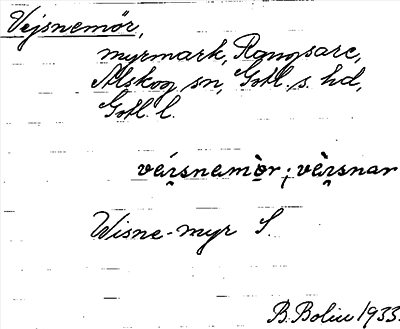 Vejsnemör,
myrmark, Rangsarc,
Alskog sn, Gotl. s. hd,
Gotl. l.
véi̯snemòr; vèi̯snar
Wisne-myr S.
B. Bolin 1933.